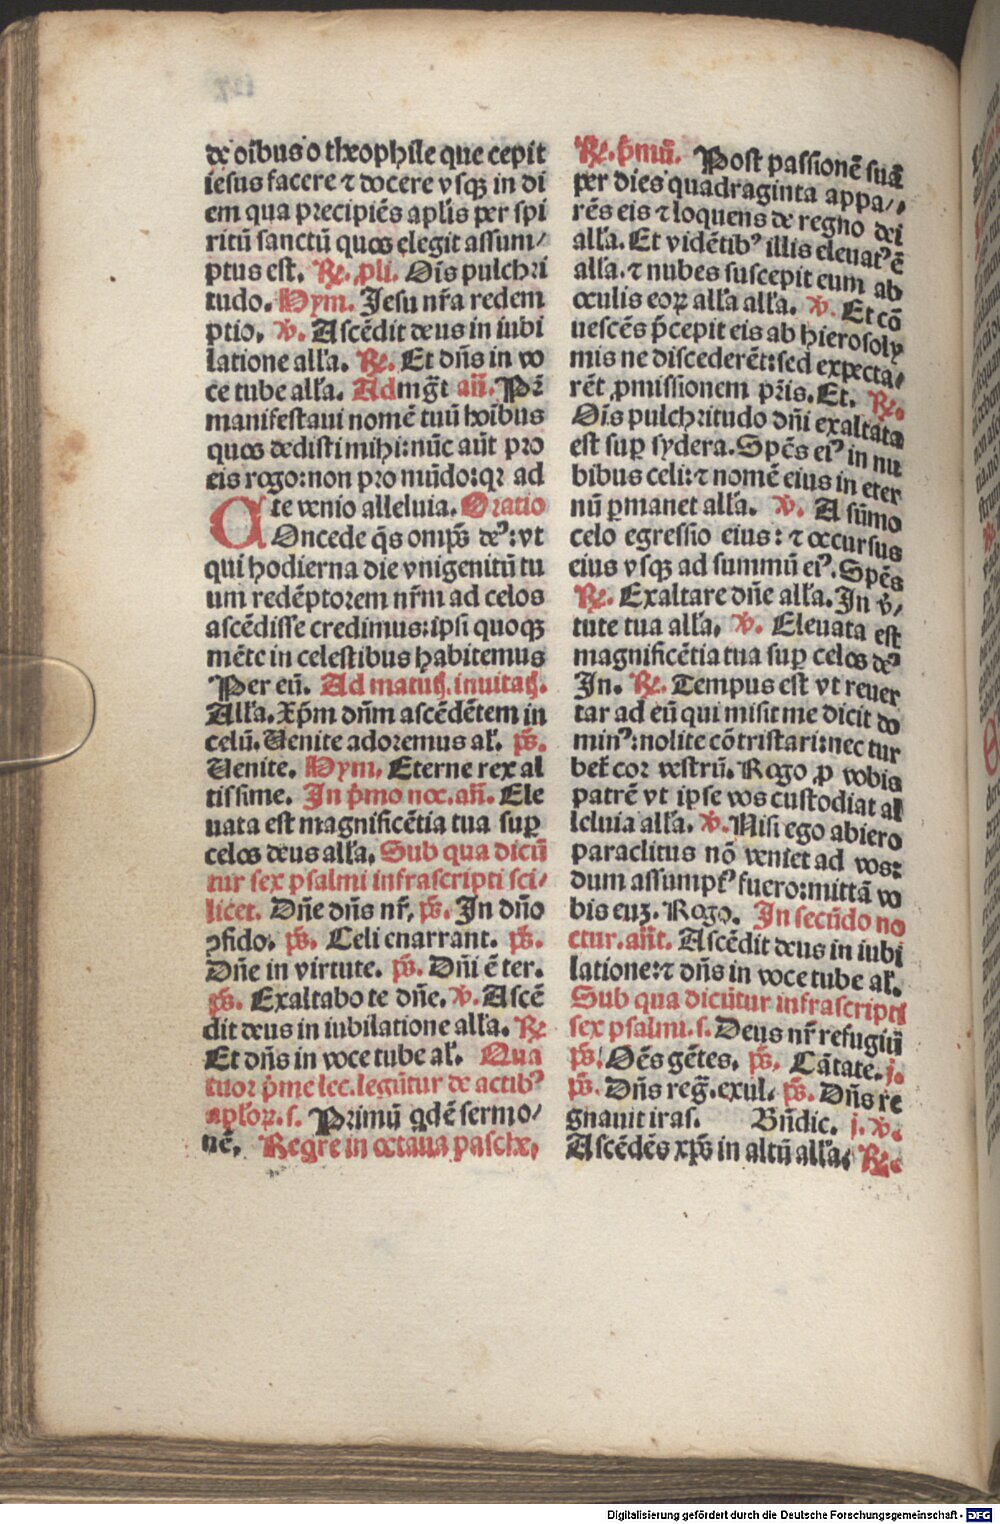 de oībus o theophile que cepit
iesus facere ⁊ docere vsqꝫ in di
em qua precipiēs apl'is per spi
ritū sanctū quos elegit assum/
ptus est. ℞. ꝓli. Oīs pulchri
tudo. Hym. Jesu nr̄a redem
ptio. ℣. Ascēdit deus in iubi
latione all'a. ℞. Et dn̄s in vo
ce tube all'a. Ad mgt̄ an̄. Pr̄
manifestaui nomē tuū hoībus
quos dedisti mihi: nūc aūt pro
eis rogo: non pro mūdo: qꝛ ad
te venio alleluia. Oratio
COncede q̄s omp̄s deꝰ: vt
qui hodierna die vnigenitū tu
um redēptorem nr̄m ad celos
ascēdisse credimus: ipsi quoqꝫ
mēte in celestibus habitemus
Per eū. Ad matuꝭ. inuitaꝭ.
All'a. Xp̄m dn̄m ascēdētem in
celū. Uenite adoremus al'. p̄s.
Uenite. Hym. Eterne rex al
tissime. In p̄mo noc. an̄. Ele
uata est magnificētia tua suꝑ
celos deus all'a. Sub qua dicū
tur sex psalmi infrascripti sci/
licet. Dn̄e dn̄s nr̄. p̄s. In dn̄o
ꝯfido. p̄s. Celi enarrant. p̄s.
Dn̄e in virtute. p̄s. Dn̄i ē ter.
p̄s. Exaltabo te dn̄e. ℣. Ascē
dit deus in iubilatione all'a. ℞
Et dn̄s in voce tube al'. Qua
tuor p̄me lec. legūtur de actibꝰ
apl'oꝝ. s. Primū qdē sermo/
nē. Regre in octaua pasche.
℞. p̄mū. Post passionē suā
per dies quadraginta appa/
rēs eis ⁊ loquens de regno dei
all'a. Et vidētibꝰ illis eleuatꝰ ē
all'a. ⁊ nubes suscepit eum ab
oculis eoꝝ all'a all'a. ℣. Et cō
uescēs p̄cepit eis ab hierosoly
mis ne discederēt: sed expecta/
rēt ꝓmissionem pr̄is. Et. ℞.
Oīs pulchritudo dn̄i exaltata
est suꝑ sydera. Spēs eiꝰ in nu
bibus celi: ⁊ nomē eius in eter
nū ꝑmanet all'a. ℣. A sūmo
celo egressio eius: ⁊ occursus
eius vsqꝫ ad summū eiꝰ. Spēs
℞. Exaltare dn̄e all'a. In v̄/
tute tua all'a. ℣. Eleuata est
magnificētia tua suꝑ celos deꝰ
In. ℞. Tempus est vt reuer
tar ad eū qui misit me dicit do
minꝰ: nolite cōtristari: nec tur
bet' cor vestrū. Rogo ꝓ vobis
patrē vt ipse vos custodiat al
leluia all'a. ℣. Nisi ego abiero
paraclitus nō veniet ad vos:
dum assumptꝰ fuero: mittā vo
bis euꝫ. Rogo. In secūdo no
ctur. an̄t. Ascēdit deus in iubi
latione: ⁊ dn̄s in voce tube al'.
Sub qua dicūtur infrascripti
sex psalmi. s. Deus nr̄ refugiū
p̄s. Oēs gētes. p̄s. Cātate. j.
p̄s. Dn̄s reḡ. exul. p̄s. Dn̄s re
gnauit iras. Bn̄dic. j. ℣.
Ascēdēs xp̄s in altū all'a. ℞.
Digitalisierung gefördert durch die Deutsche Forschungsgemeinschaft - DFG